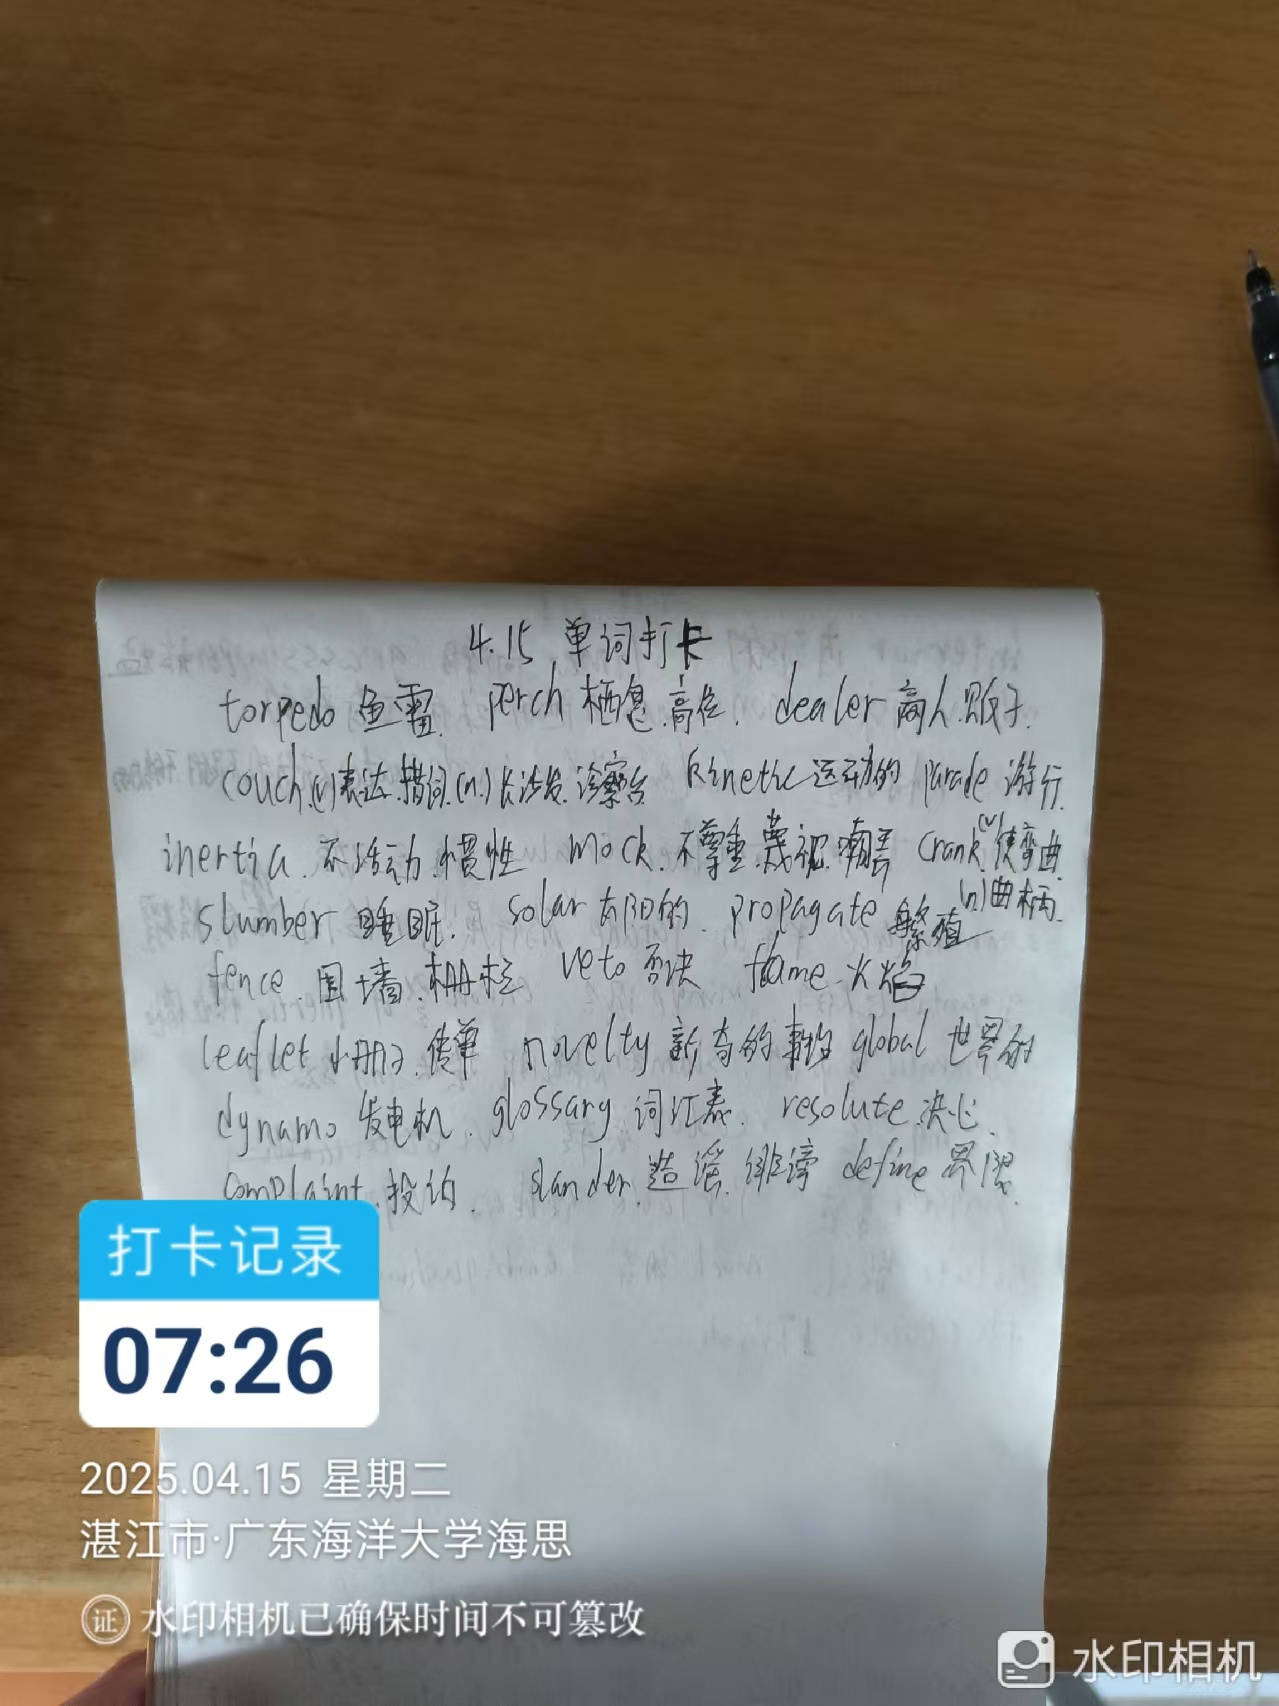 4.15 单词打卡
torpedo 鱼雷. perch 栖息.高位. dealer 商人.贩子.
couch.(v)表达.措词.(n.)长沙发.诊察台 kinetic 运动的 parade 游行.
inertia.不活动.惯性 mock.不尊重.蔑视.嘲弄 crank.(v)使弯曲.
(n)曲柄.
slumber 睡眠. solar 太阳的. propagate 繁殖
fence.围墙.栅栏 veto 否决 flame.火焰
leaflet 小册子.传单 novelty 新奇的事物 global 世界的
dynamo 发电机. glossary.词汇表. resolute.决心.
complaint.投诉. slander.造谣.诽谤 define 界限.
打卡记录
07:26
2025.04.15 星期二
湛江市·广东海洋大学海思
证 水印相机已确保时间不可篡改
水印相机